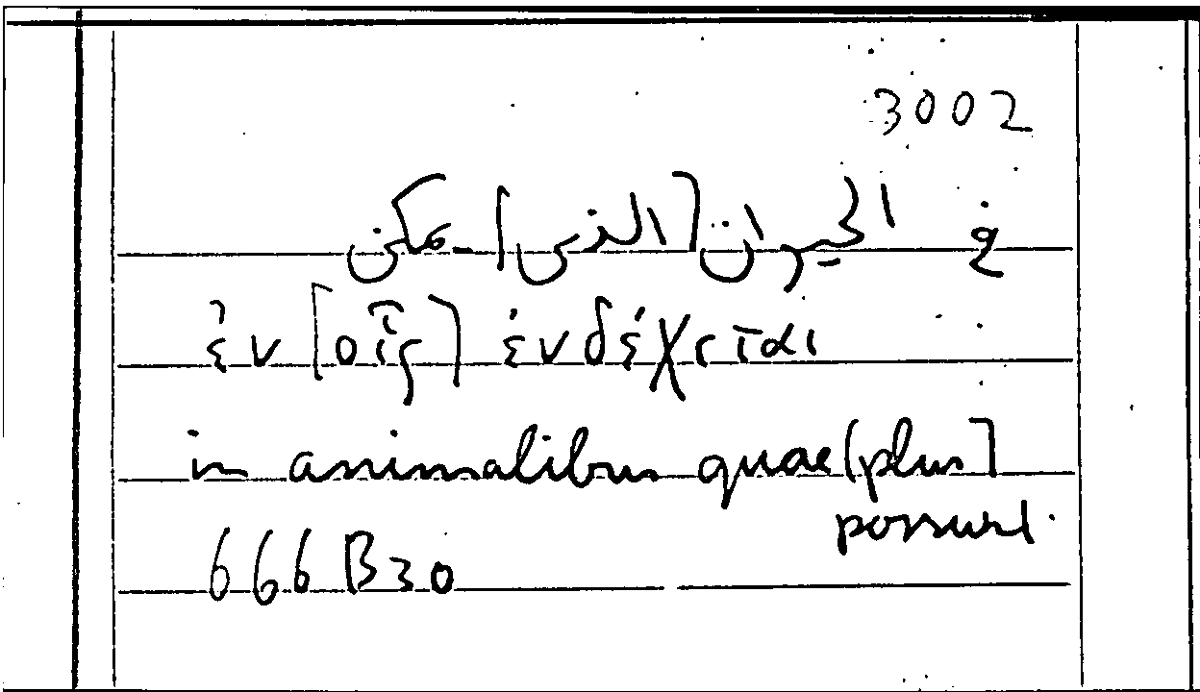 3002
في الحيوان [الذى] يمكن
ἐν [οἷς] ἐνδέχεται
in animalibus quae [plus]
possunt.
666 B30